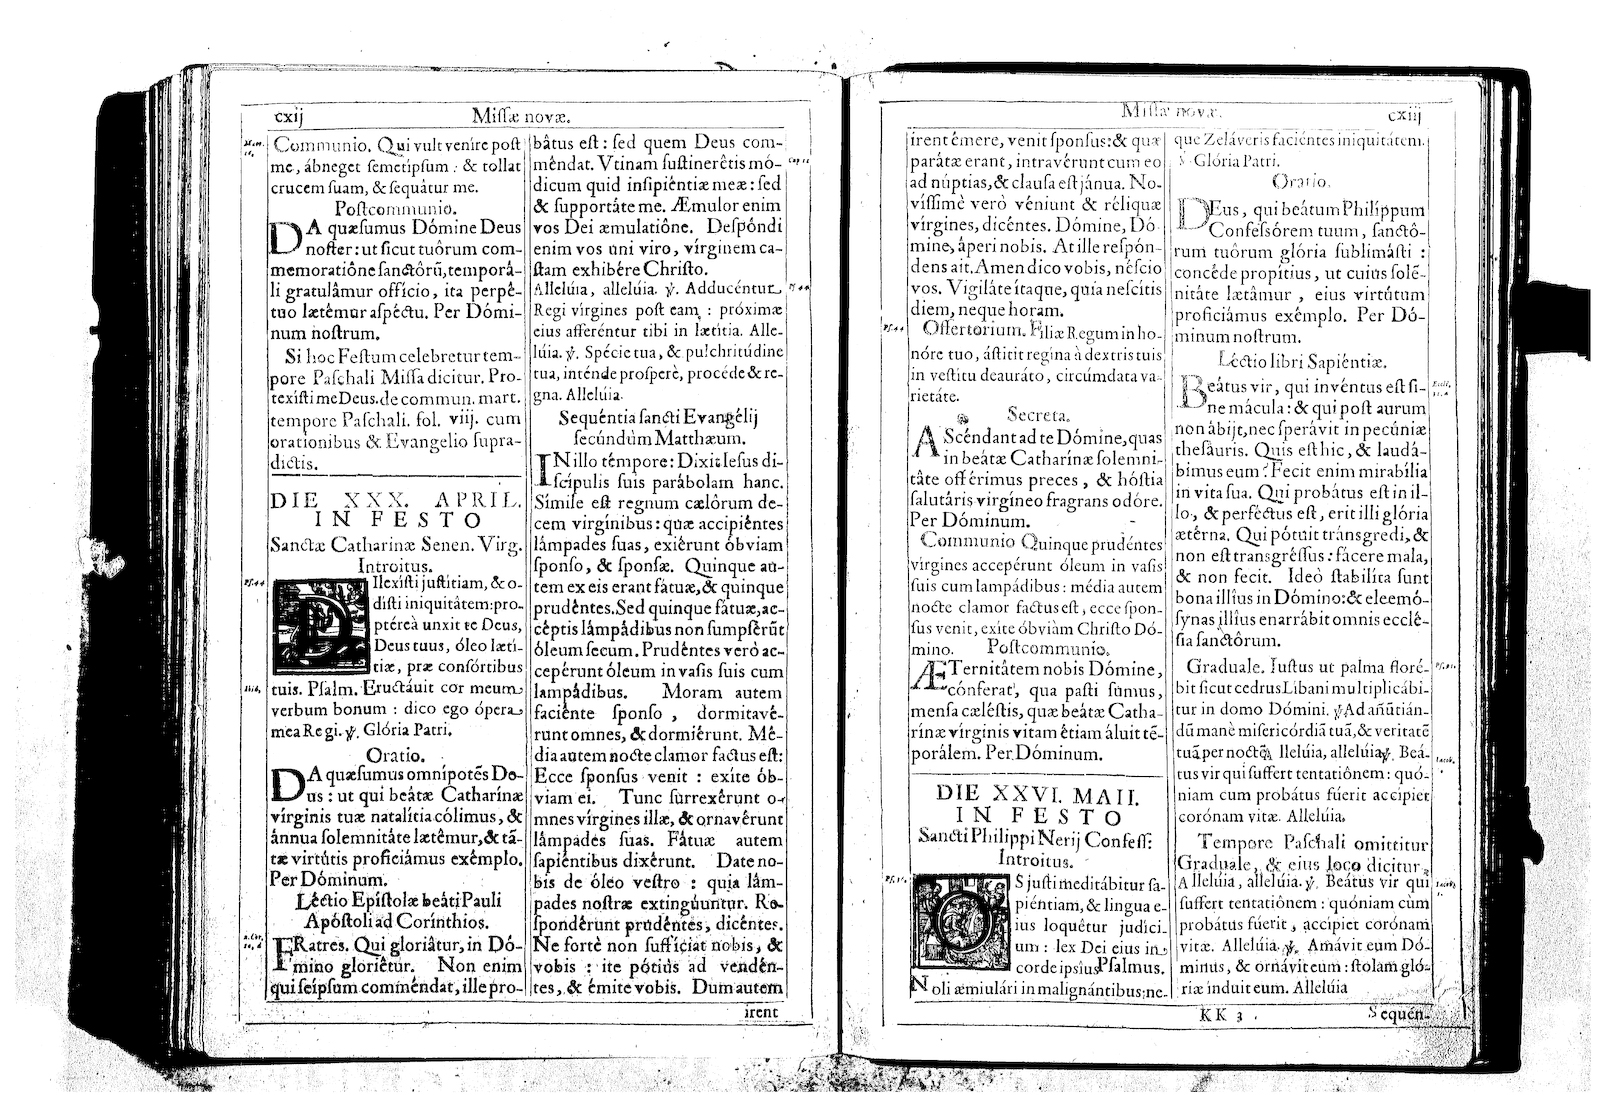 cxij
Miſſæ novæ.
Communio. Qui vult venire poſt
me, ábneget ſemetipſum : & tollat
crucem ſuam, & ſequâtur me.
Poſtcommunio.
DA quæſumus Dómine Deus
noſter : ut ſicut tuôrum com-
memoratiône ſanctôrũ, temporá-
li gratulâmur offício, ita perpê-
tuo lætêmur aſpéctu. Per Dómi-
num noſtrum.
Si hoc Feſtum celebretur tem-
pore Paſchali Miſſa dicitur. Pro-
texiſti me Deus. de commun. mart.
tempore Paſchali. fol. viij. cum
orationibus & Evangelio ſupra-
dictis.
DIE XXX. APRIL.
IN FESTO
Sanctæ Catharinæ Senen. Virg.
Introitus.
Pſ. 44
DIlexiſti juſtitiam, & o-
diſti iniquitâtem: pro-
ptéreà unxit te Deus,
Deus tuus, óleo læti-
tiæ, præ conſórtibus
tuis. Pſalm. Eructáuit cor meum
verbum bonum : dico ego ópera
mea Regi. ℣. Glória Patri.
Ibid.
Oratio.
DA quæſumus omnípotẽs De-
us : ut qui beátæ Catharínæ
vírginis tuæ natalítia cólimus, &
ánnua ſolemnitáte lætêmur, & tã-
tæ virtútis proficiámus exémplo.
Per Dóminum.
Léctio Epíſtolæ beáti Pauli
Apóſtoli ad Corínthios.
FRatres. Qui gloriâtur, in Dó-
mino gloriêtur. Non enim
qui ſeípſum comméndat, ille pro-
bâtus eſt : ſed quem Deus com-
méndat. Vtinam ſuſtinerêtis mó-
dicum quid inſipiéntiæ meæ : ſed
& ſupportáte me. Æmulor enim
vos Dei æmulatiône. Deſpóndi
enim vos uni viro, vírginem ca-
ſtam exhibére Chriſto.
Cap. 11
Allelúia, allelúia. ℣. Adducéntur
Regi vírgines poſt eam : próximæ
eius afferéntur tibi in lætítia. Alle-
lúia. ℣. Spécie tua, & pulchritúdine
tua, inténde proſperè, procéde & re-
gna. Allelúia.
Pſ. 44
Sequéntia ſancti Evangélij
ſecúndùm Matthæum.
IN illo témpore: Dixit Ieſus di-
ſcípulis ſuis parábolam hanc.
Símile eſt regnum cælôrum de-
cem virgínibus : quæ accipiéntes
lámpades ſuas, exiêrunt óbviam
ſponſo, & ſponſæ. Quinque au-
tem ex eis erant fátuæ, & quinque
prudêntes. Sed quinque fátuæ, ac-
céptis lâmpádibus non ſumpſêrũt
óleum ſecum. Prudéntes verò ac-
cepérunt óleum in vaſis ſuis cum
lampádibus. Moram autem
faciênte ſponſo , dormitavé-
runt omnes, & dormiérunt. Mé-
dia autem nocte clamor factus eſt:
Ecce ſponſus venit : exíte ób-
viam ei. Tunc ſurrexêrunt o-
mnes vírgines illæ, & ornavérunt
lâmpades ſuas. Fátuæ autem
ſapiéntibus dixérunt. Date no-
bis de óleo veſtro : quia lâm-
pades noſtræ extingúuntur. Re-
ſpondérunt prudéntes, dicéntes.
Ne fortè non ſuffíciat nobis, &
vobis : ite pótiùs ad vendén-
tes, & émite vobis. Dum autem
irent
Miſſæ novæ.
cxiij
irent émere, venit ſponſus: & quæ
parátæ erant, intravérunt cum eo
ad núptias, & clauſa eſt jánua. No-
víſſimè verò véniunt & réliquæ
vírgines, dicéntes. Dómine, Dó-
mine, áperi nobis. At ille reſpón-
dens ait. Amen dico vobis, néſcio
vos. Vigiláte ítaque, quia neſcítis
diem, neque horam.
Pſ. 44
Offertorium. Fíliæ Regum in ho-
nóre tuo, áſtitit regína à dextris tuis
in veſtítu deauráto, circúmdata va-
rietáte.
Secreta.
AScéndant ad te Dómine, quas
in beátæ Catharínæ ſolemni-
tâte offérimus preces , & hóſtia
ſalutáris virgíneo fragrans odóre.
Per Dóminum.
Communio Quinque prudéntes
vírgines accepérunt óleum in vaſis
ſuis cum lampádibus : média autem
nocte clamor factus eſt, ecce ſpon-
ſus venit, exíte óbviàm Chriſto Dó-
mino. Poſtcommunio.
ÆTernitátem nobis Dómine,
cónferat, qua paſti ſumus,
menſa cæléſtis, quæ beátæ Catha-
rínæ vírginis vitam étiam áluit tẽ-
porálem. Per Dóminum.
DIE XXVI. MAII.
IN FESTO
Sancti Philippi Nerij Confeſſ:
Introitus.
OS juſti meditábitur ſa-
piéntiam, & lingua e-
ius loquétur judíci-
um : lex Dei eius in
corde ipſius Pſalmus.
Noli æmiulári in malignántibus; ne-
que Zeláveris faciéntes iniquitátem.
Glória Patri.
Oratio.
DEus, qui beátum Philíppum
Confeſſórem tuum, ſanctô-
rum tuôrum glória ſublimáſti :
concéde propítius, ut cuius ſolé-
nitáte lætâmur , eius virtútum
proficiámus exémplo. Per Dó-
minum noſtrum.
Léctio libri Sapiéntiæ.
BEátus vir, qui invéntus eſt ſi-
ne mácula : & qui poſt aurum
non ábijt, nec ſperávit in pecúniæ
theſáuris. Quis eſt hic, & laudá-
bimus eum? Fecit enim mirabília
in vita ſua. Qui probátus eſt in il-
lo, & perféctus eſt, erit illi glória
ætérna. Qui pótuit tránsgredi, &
non eſt transgréſſus : fácere mala,
& non fecit. Ideò ſtabilíta ſunt
bona illíus in Dómino: & eleemó-
ſynas illíus enarrábit omnis ecclé-
ſia ſanctôrum.
Graduale. Iuſtus ut palma floré-
bit ſicut cedrus Líbani multiplicábi-
tur in domo Dómini. ℣ Ad añũtián-
dũ manè miſericórdiã tuã, & veritatẽ
tuã per noctẽ. Allelúia, allelúia ℣. Beá-
tus vir qui ſuffert tentatiônem: quó-
niam cum probátus fúerit accípiet
corónam vitæ. Allelúia,
Tempore Paſchali omittitur
Graduale, & eius loco dicitur
Allelúia, allelúia. ℣. Beátus vir qui
ſuffert tentatiônem : quóniam cùm
probátus fúerit , accípiet corónam
vitæ. Allelúia. ℣. Amávit eum Dó-
minus, & ornávit eum : ſtolam gló-
riæ índuit eum. Allelúia
KK 3
Sequén-